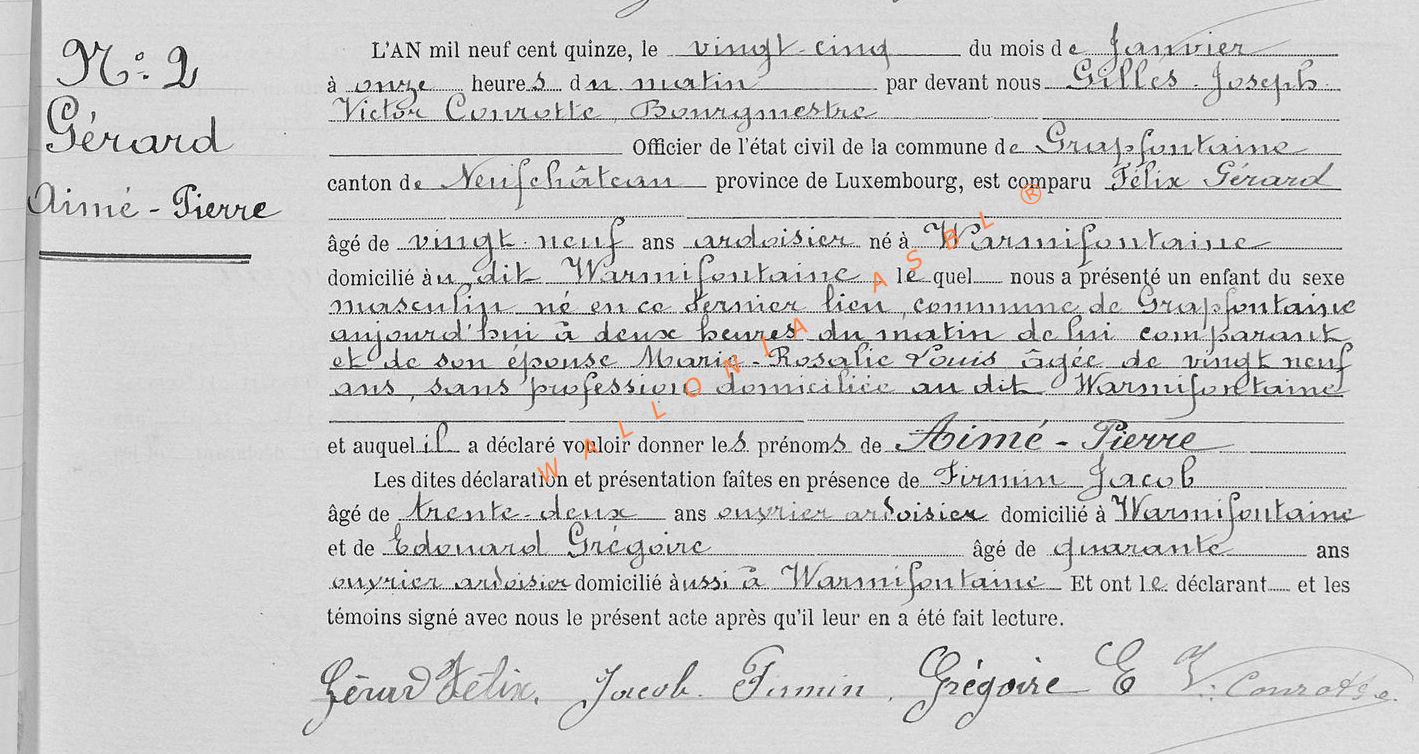 N° 2
Gérard
Aimé - Pierre
L'AN mil neuf cent quinze, le vingt-cinq du mois de Janvier
à onze heures du matin par devant nous Gilles-Joseph-
Victor Conrotte, Bourgmestre
Officier de l'état civil de la commune de Grapfontaine
canton de Neufchâteau province de Luxembourg, est comparu Félix Gérard
âgé de vingt-neuf ans ardoisier né à Warmifontaine
domicilié àu dit Warmifontaine lequel nous a présenté un enfant du sexe
masculin né en ce dernier lieu, commune de Grapfontaine
aujourd'hui à deux heures du matin de lui comparant
et de son épouse Marie-Rosalie Louis âgée de vingt neuf
ans, sans profession domiciliée au dit Warmifontaine
et auquel il a déclaré vouloir donner les prénoms de Aimé - Pierre
Les dites déclaration et présentation faîtes en présence de Firmin Jacob
âgé de trente-deux ans ouvrier ardoisier domicilié à Warmifontaine
et de Edouard Grégoire âgé de quarante ans
ouvrier ardoisier domicilié àussi à Warmifontaine Et ont le déclarant et les
témoins signé avec nous le présent acte après qu'il leur en a été fait lecture.
Gérard Félix. Jacob Firmin. Grégoire E V. Conrotte.
WALLONIA ASBL ®